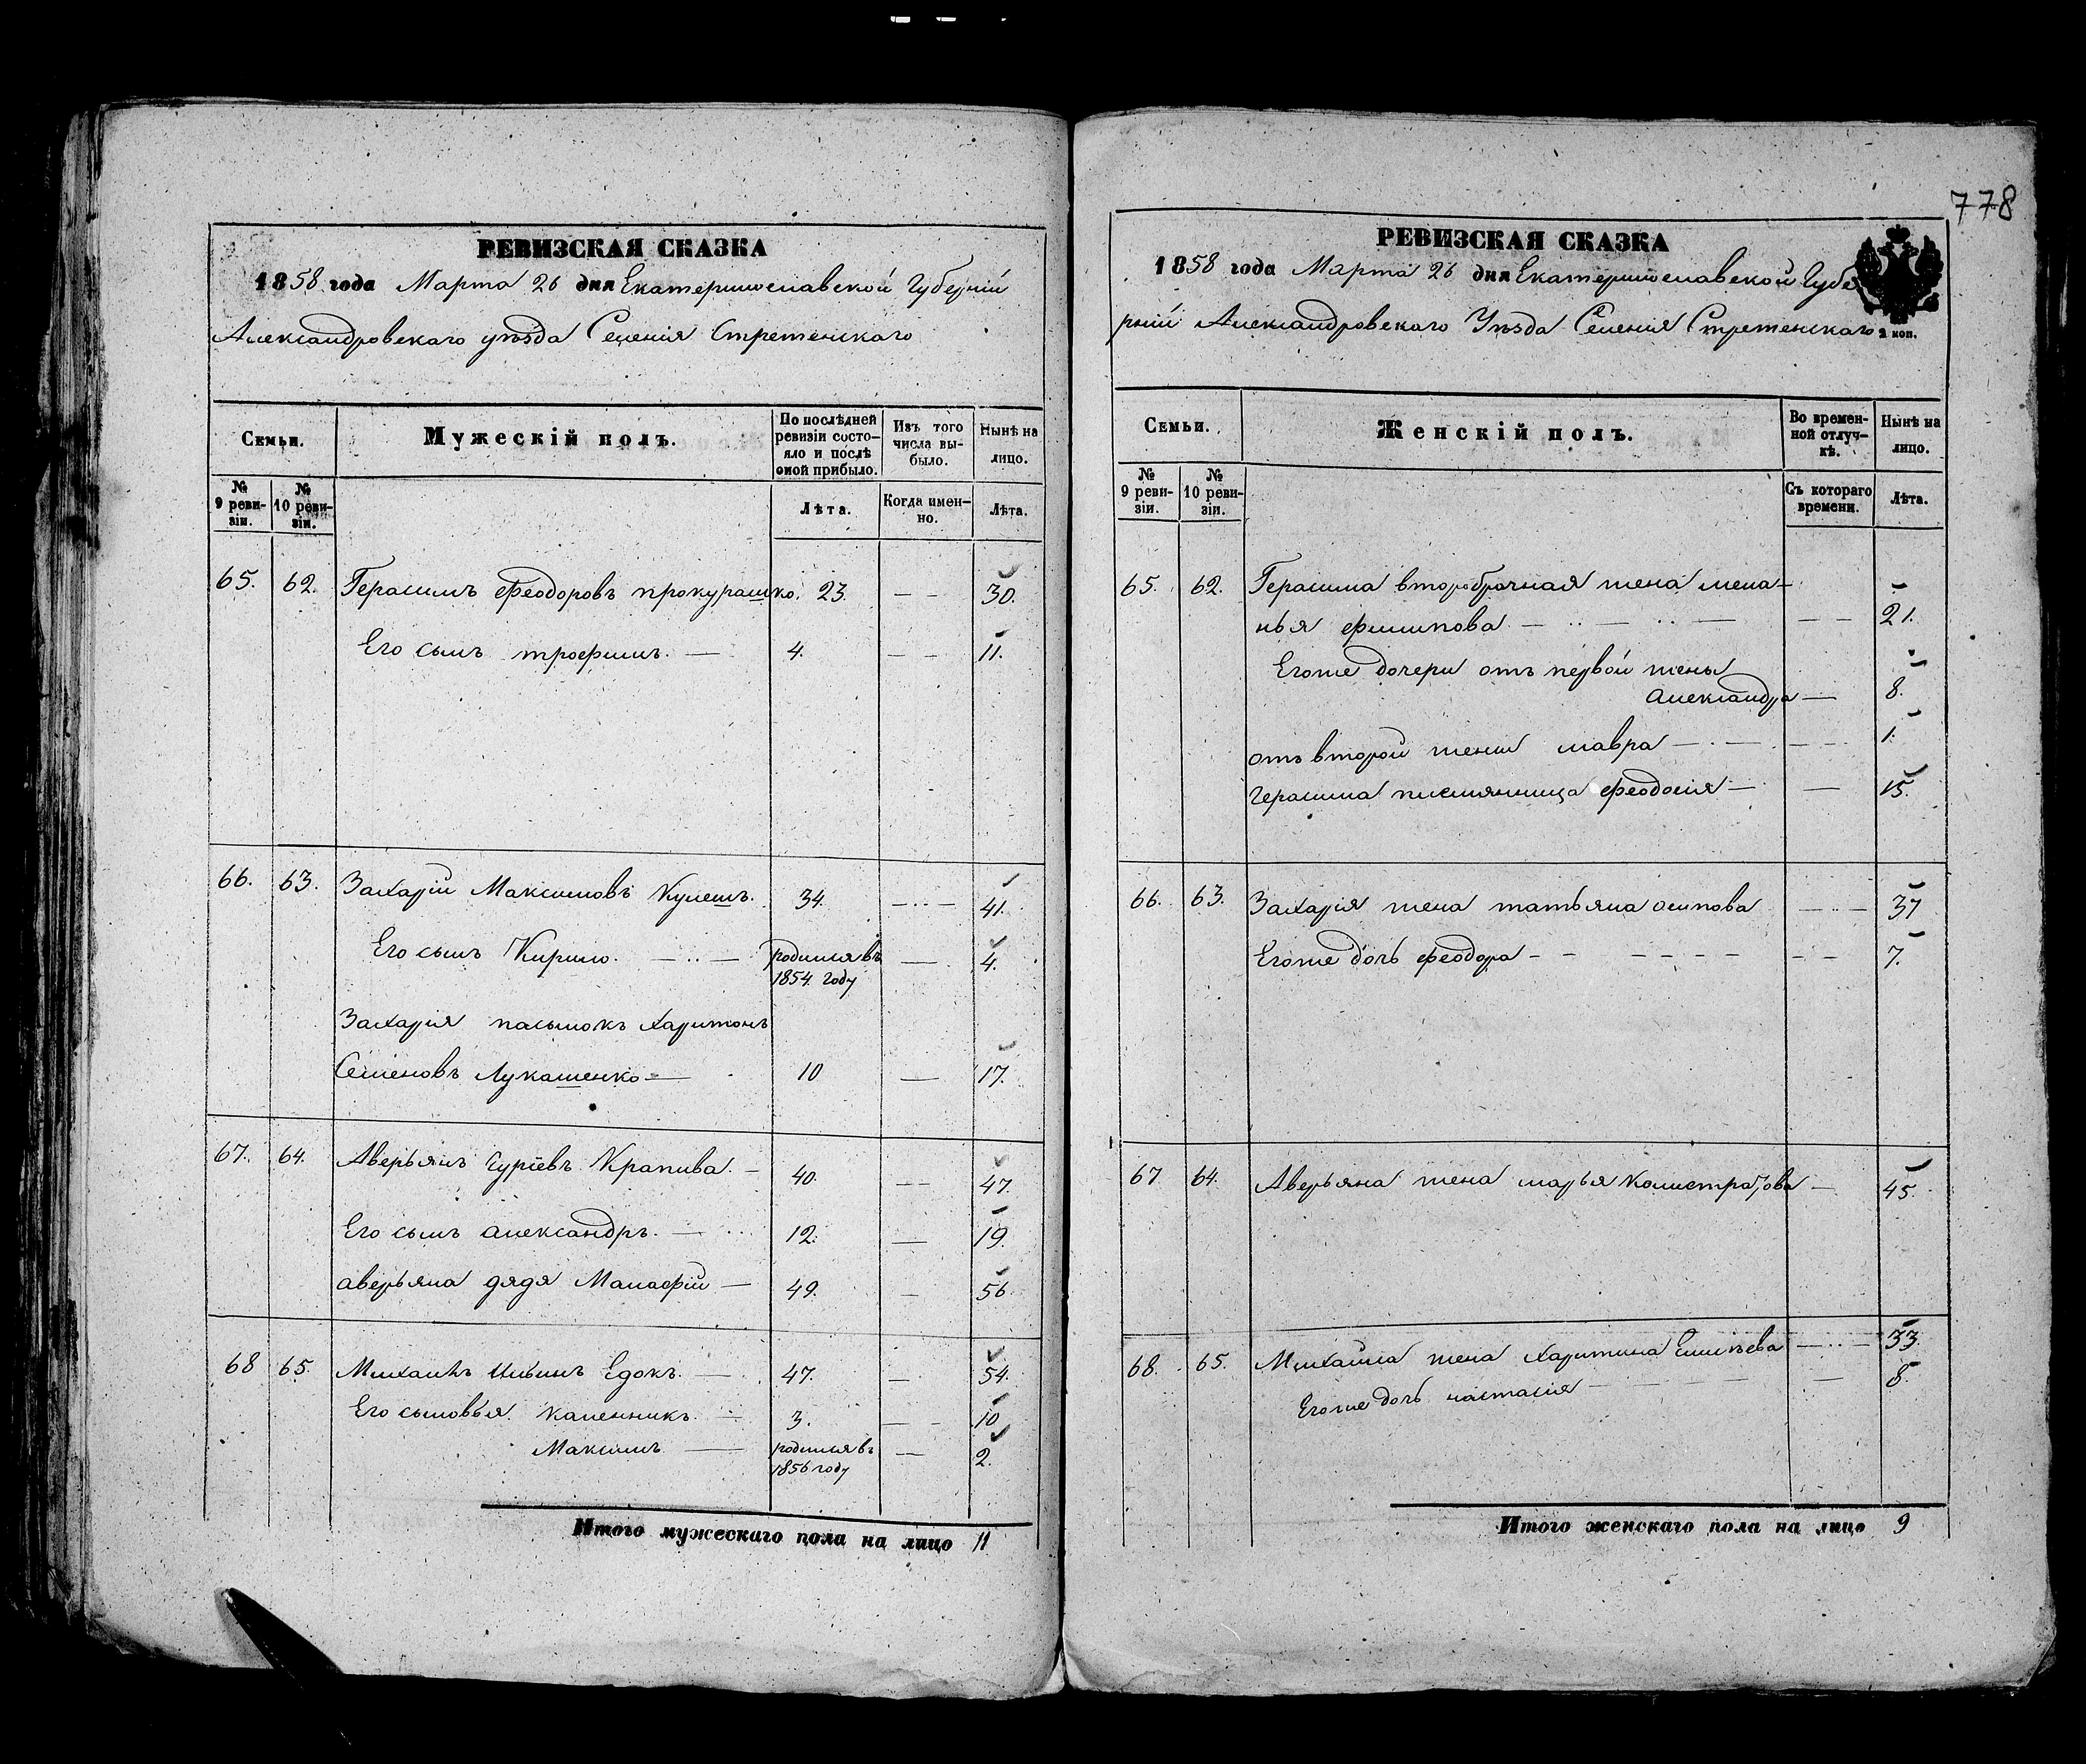 778
РЕВИЗСКАЯ СКАЗКА
1858 года Марта 26 дня Екатеринославской Губерніи
Александровскаго уѣзда Селенія Стретенскаго
Семьи.
Мужескій полъ.
По послѣдней ревизіи состо-яло и послѣ оной прибыло.
Изъ того числа вы-было.
Нынѣ на лицо.
№ 9 реви-зіи.
№ 10 реви-зіи.
Лѣта.
Когда имен-но.
Лѣта.
65. 62. Герасимъ Феодоровъ прокурашко. 23. — — 30.
Его сынъ трофимъ. — 4. — — 11.
66. 63. Захарій Максимовъ Кулешъ. 34. — .. — 41.
Его сынъ Кирило. — .. — родился въ 1854. году — 4.
Захарія пасынокъ харитонъ
Семеновъ Лукашенко — 10 — 17.
67. 64. Аверьянъ Гуріевъ Крапива. — 40. — — 47.
Его сынъ александръ. — 12. — 19.
аверьяна дядя Манафій — 49. — 56.
68 65. Михаилъ Ильинъ Едокъ. — 47. — 54.
Его сыновья. каленникъ. — 3. — — 10
Максимъ — родился въ 1856 году — 2.
Итого мужескаго пола на лицо 11
РЕВИЗСКАЯ СКАЗКА
1858 года Марта 26 дня Екатеринославской Губе
рніи Александровскаго Уѣзда Селенія Стретенскаго
2 коп.
Семьи.
Женскій полъ.
Во времен-ной отлуч-кѣ.
Нынѣ на лицо.
№ 9 реви-зіи.
№ 10 реви-зіи.
Съ котораго времени.
Лѣта.
65. 62. Герасима второбрачная жена мела-
нья филипова — .. — .. — — — 21.
Егоже дочери отъ первой жены
александра — 8.
отъ второй жены мавра — . — . — — 1.
герасима племянница феодосія — — 15.
66. 63. Захарія жена татьяна осипова — .. — 37
Егоже дочь феодора — — — — — — — — 7.
67 64. Аверьяна жена марья калистратова — 45.
68. 65. Михаила жена харитина Емильева — .. — 33.
Егоже дочь настасія — — — — — 8.
Итого женскаго пола на лицо 9